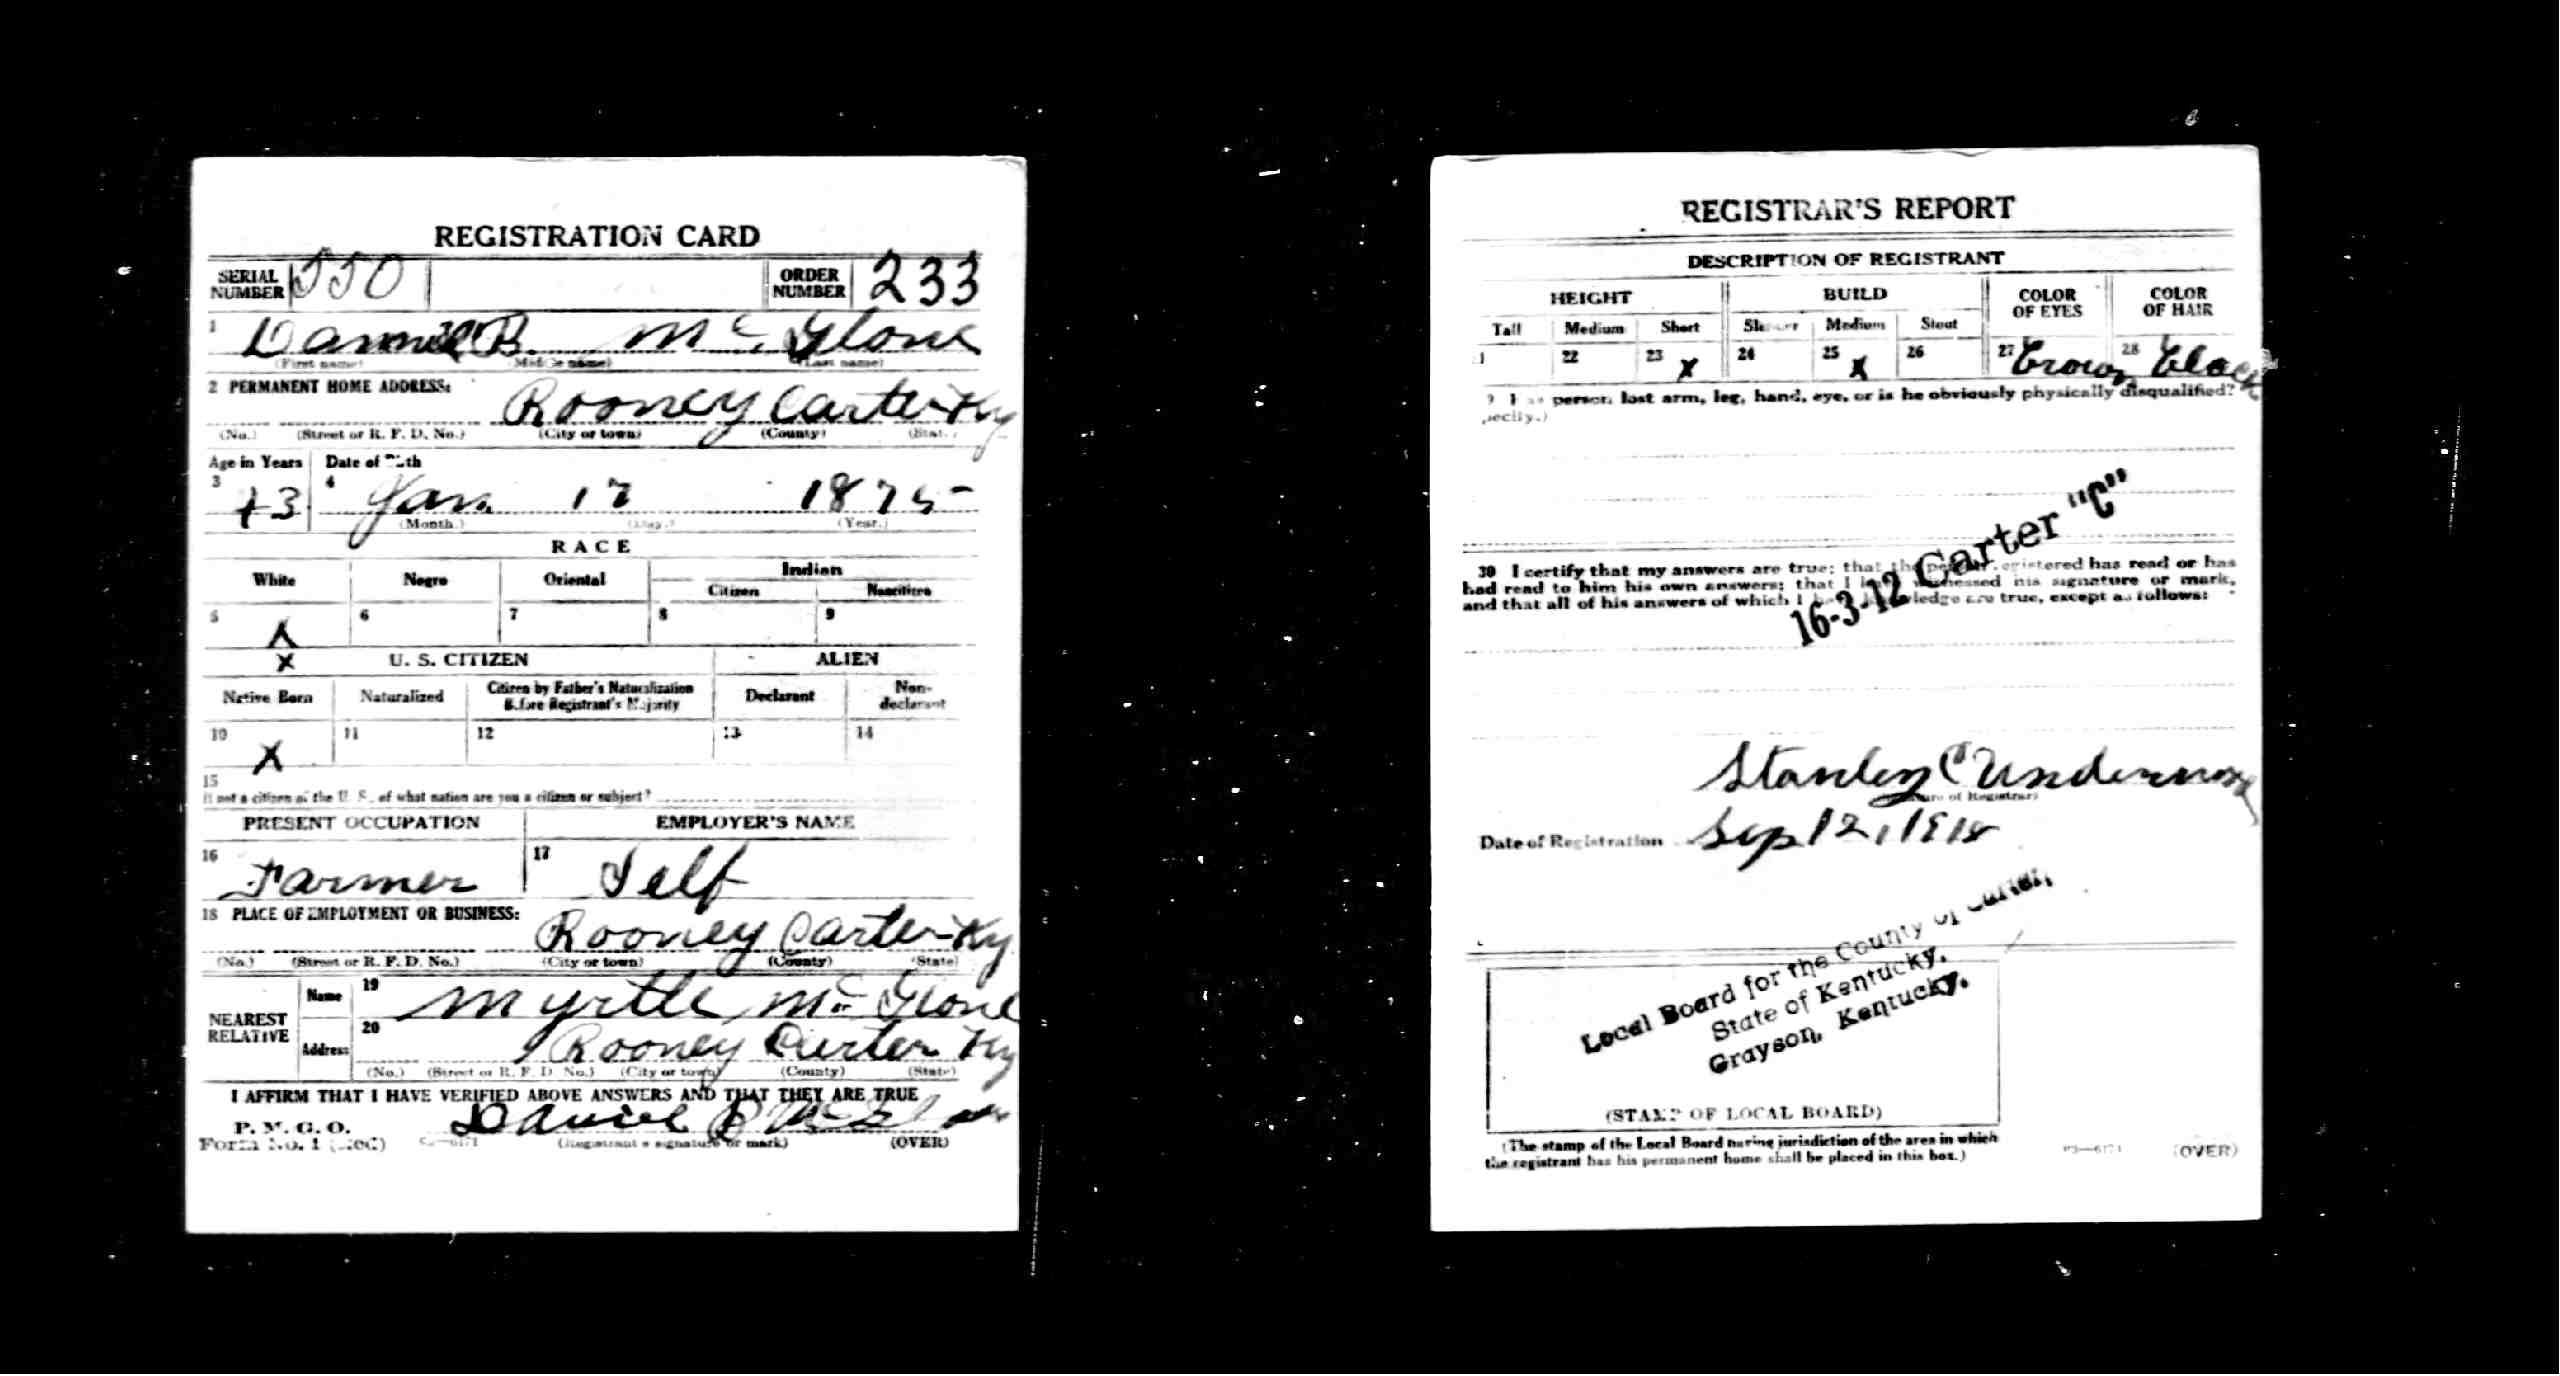 REGISTRATION CARD
SERIAL NUMBER 550 ORDER NUMBER 233
1 Daniel B. Mc Glone
(First name) (Middle name) (Last name)
2 PERMANENT HOME ADDRESS:
Rooney Carter Ky
(No.) (Street or R. F. D. No.) (City or town) (County) (State)
Age in Years Date of Birth
3 43 4 Jan. 17 1875
(Month.) (Day.) (Year.)
RACE
White Negro Oriental Indian
Citizen Noncitizen
5 X 6 7 8 9
X U. S. CITIZEN ALIEN
Native Born Naturalized Citizen by Father's Naturalization Before Registrant's Majority Declarant Non-declarant
10 X 11 12 13 14
15
If not a citizen of the U. S., of what nation are you a citizen or subject?
PRESENT OCCUPATION EMPLOYER'S NAME
16 Farmer 17 Self
18 PLACE OF EMPLOYMENT OR BUSINESS:
Rooney Carter Ky
(No.) (Street or R. F. D. No.) (City or town) (County) (State)
NEAREST RELATIVE Name 19 Myrtle Mc Glone
Address 20 Rooney Carter Ky
(No.) (Street or R. F. D. No.) (City or town) (County) (State)
I AFFIRM THAT I HAVE VERIFIED ABOVE ANSWERS AND THAT THEY ARE TRUE
P. M. G. O.
Form No. 1 (Red) Daniel B McGlone
(Registrant's signature or mark) (OVER)
REGISTRAR'S REPORT
DESCRIPTION OF REGISTRANT
HEIGHT BUILD COLOR OF EYES COLOR OF HAIR
Tall Medium Short Slender Medium Stout
1 22 23 X 24 25 X 26 27 Brown 28 Black
person lost arm, leg, hand, eye, or is he obviously physically disqualified?
pecify.)
30 I certify that my answers are true; that the person registered has read or has
had read to him his own answers; that I have witnessed his signature or mark,
and that all of his answers of which I have knowledge are true, except as follows:
16-3-12 Carter "C"
Stanley C
(Signature of Registrar)
Date of Registration Sep 12, 1918
Local Board for the County of Carter,
State of Kentucky,
Grayson, Kentucky.
(STAMP OF LOCAL BOARD)
(The stamp of the Local Board having jurisdiction of the area in which
the registrant has his permanent home shall be placed in this box.)
(OVER)